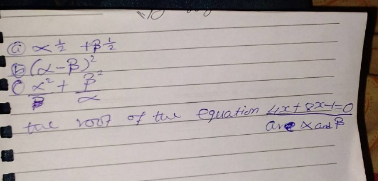 (a) α ½ + β ½
(b) (α - β)²
(c) α²/β + β²/α
the root of the equation 4x + 8x - 1 = 0
are α and β